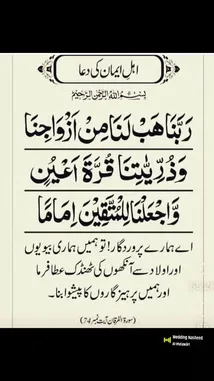 اہلِ ایمان کی دعا
بِسْمِ اللهِ الرَّحْمٰنِ الرَّحِيْمِ
رَبَّنَا هَبْ لَنَا مِنْ اَزْوَاجِنَا
وَذُرِّيّٰتِنَا قُرَّةَ اَعْيُنٍ
وَّاجْعَلْنَا لِلْمُتَّقِيْنَ اِمَامًا
اے ہمارے پروردگار! تو ہمیں ہماری بیویوں
اور اولاد سے آنکھوں کی ٹھنڈک عطا فرما
اور ہمیں پرہیزگاروں کا پیشوا بنا۔
(سورۃ الفرقان آیت نمبر ۷۴)
Wedding Nasheed
Al-Muqawim